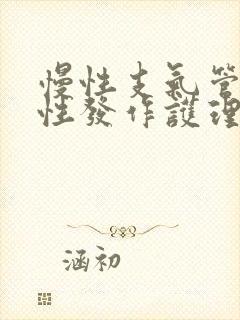 慢性支氣管
性發作護理
涵初